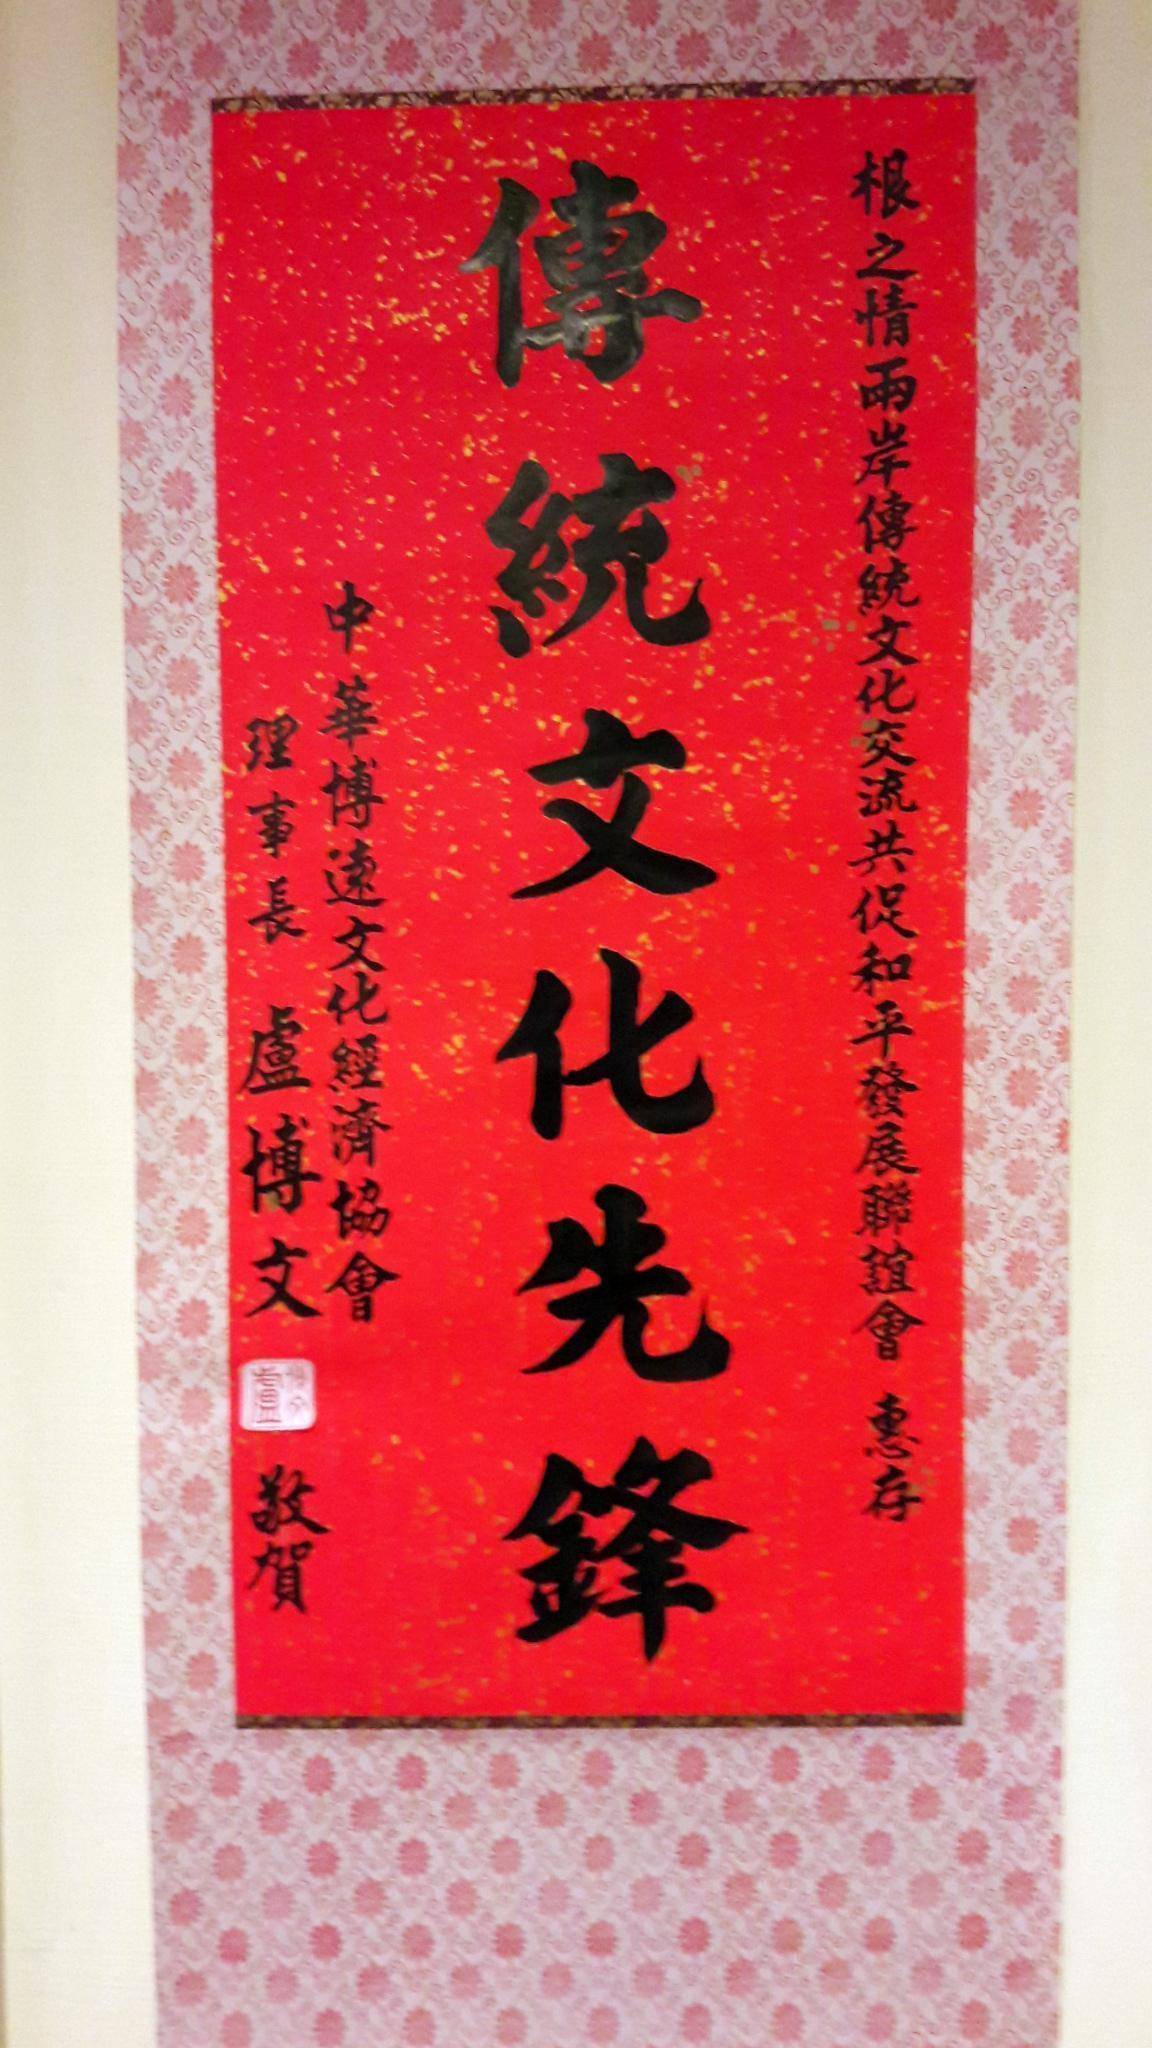 根之情兩岸傳統文化交流共促和平發展聯誼會 惠存
傳統文化先鋒
中華博遠文化經濟協會
理事長 盧博文 敬賀